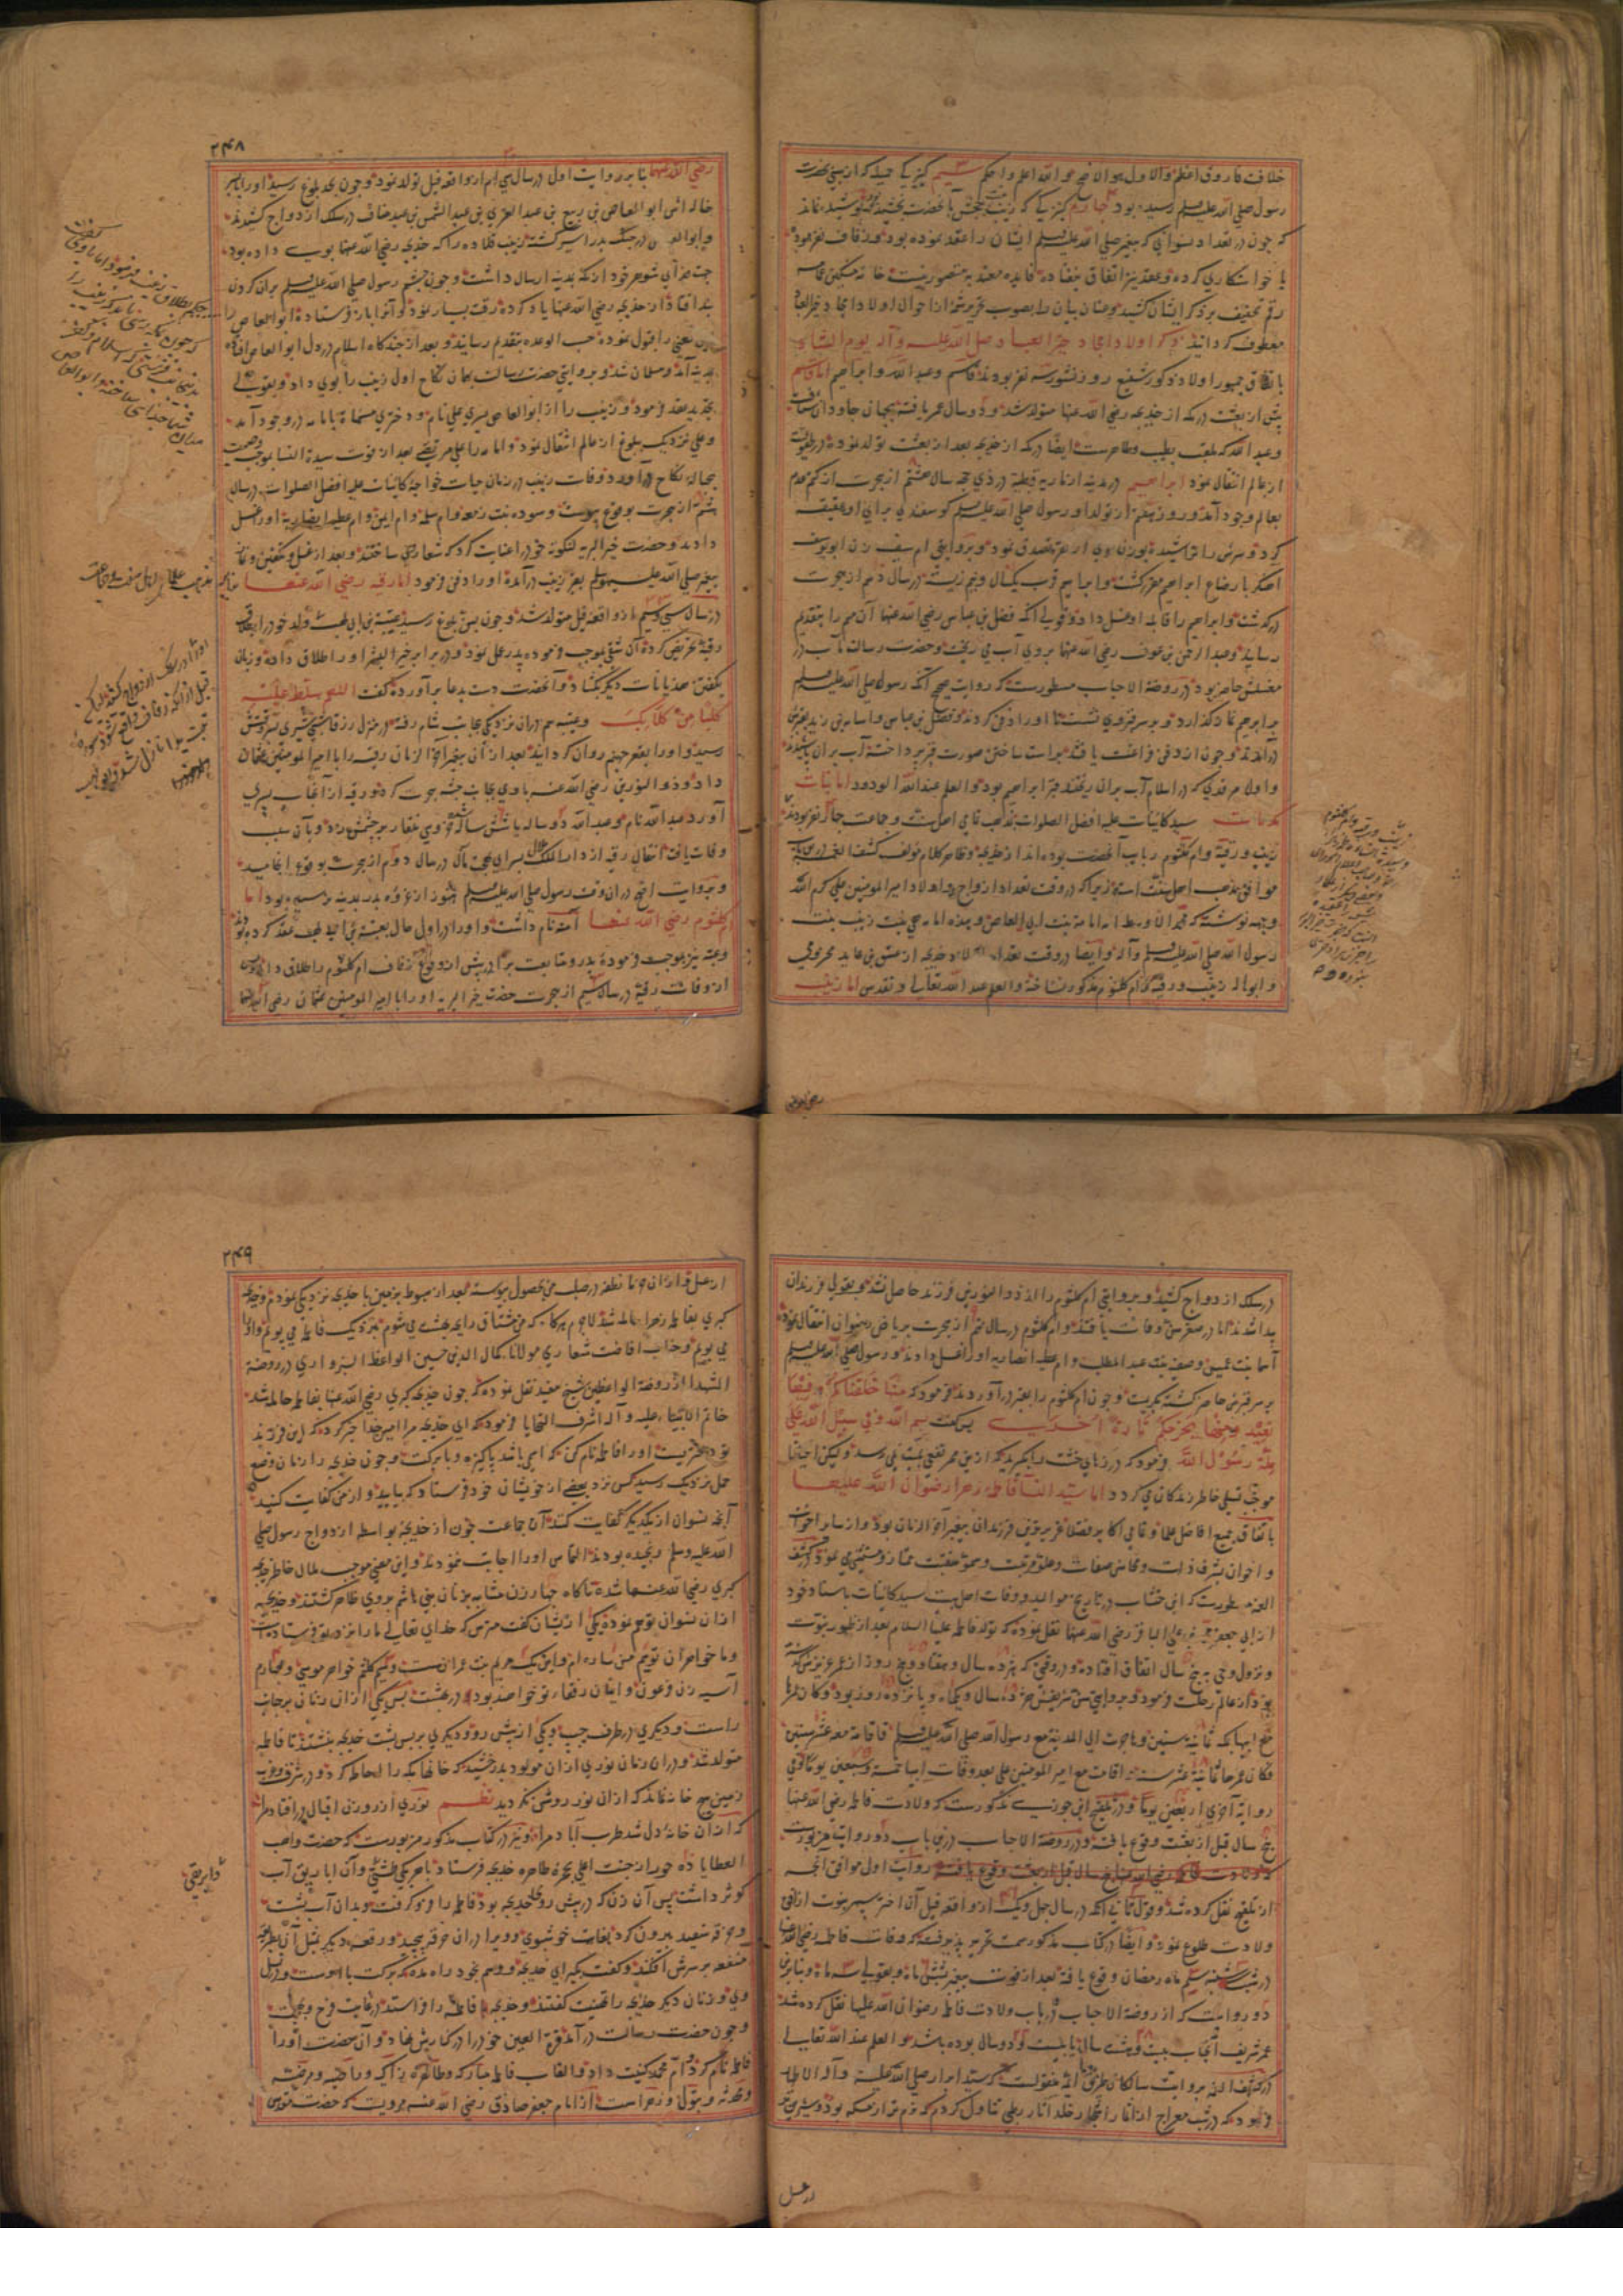 خلافت فاروق اعظم والاول هو الاصح والله اعلم واحکم سیم کنیزکی جمیله که از بعضی
رسول صلی الله علیه وسلم رسیده بود چهارم کنیزکی که زینب بنت جحش بآنحضرت بخشید
که چون در تعداد نسوانی که پیغمبر صلی الله علیه وسلم ایشان را عقد نموده بود و زفاف نفرموده
یا خواستکاری کرده و عقد نیز اتفاق نیفتاده فایده معتد به متصور نیست خامه مشکین عمامه
رقم تخفیف بر ذکر ایشان کشیده عنان بیان را بصوب تحریر شمه از احوال اولاد امجاد خیر العباد
معطوف کردانید ذکر اولاد امجاد خیر العباد صلی الله علیه وآله یوم التناد
باتفاق جمهور اولاد ذکور شفیع روز نشور سه نفر بودند قاسم وعبد الله وابراهیم اما قاسم
پیش از بعثت در مکه از خدیجه رضی الله عنها متولد شد و دو سال عمر یافته بجهان جاودان شتافت
وعبد الله که ملقب بطیب وطاهرست ایضا در مکه از خدیجه بعد از بعثت تولد نموده در طفولیت
از عالم انتقال نمود ابراهیم در مدینه از ماریه قبطیه در ذی حجه سال هشتم از هجرت از کتم عدم
بعالم وجود آمد و روز هفتم از تولد او رسول صلی الله علیه وسلم کوسفندی برای او عقیقه
کرد و سرش را تراشیده بوزن موی او نقره تصدق نمود و بروایتی ام سیف زن ابو یوسف
اهنکر بارضاع ابراهیم مقرر کشت و ابراهیم قرب یکسال و نیم زیسته در سال دهم از هجرت
درکذشت و ابراهیم را قابله او غسل داد و قولی آنکه فضل بن عباس رضی الله عنهما آن مهم را بتقدیم
رسانید و عبد الرحمن بن عوف رضی الله عنهما بروی آب می ریخت و حضرت رسالت مآب در
مغسلش حاضر بود در روضة الاحباب مسطورست که روایت صحیح آنکه رسول صلی الله علیه وسلم
بر ابراهیم نماز کذارد و بر سر قبر وی نشست تا او را دفن کردند و فضل بن عباس و اسامه بن زید بقبرش
درآمدند و چون از دفن فراغت یافتند براست ساختن صورت قبر پرداخته آب بران پاشیدند
و اول مرقدی که در اسلام آب بران ریختند قبر ابراهیم بود والعلم عند الله الودود اما بنات
مکرمات سید کاینات علیه افضل الصلوات بمذهب تمامی اهل سنت و جماعت چهار نفر بودند
زینب و رقیه و ام کلثوم ربایب آنحضرت بوده اند از خدیجه و ظاهر کلام مولف کشف الغمه
موافق مذهب اهل سنت است زیرا که در وقت تعداد ازواج و اولاد امیر المؤمنین علی کرم الله
وجهه نوشته که امامه بنت ابی العاص و هذه امامه هی بنت زینب بنت
رسول الله صلی الله علیه وسلم وآله و ایضا در وقت تعداد اولاد خدیجه از عتیق بن عاید مخزومی
و ابو هاله زینب و رقیه و ام کلثوم مذکور نساخته والعلم عند الله تعالی و تقدس اما زینب
۲۴۸
رضی الله عنها بنا بر روایت اول در سال سی ام از واقعه فیل تولد نمود و چون بحد بلوغ رسید او را با پسر
خاله اش ابو العاص بن ربیع بن عبد العزی بن عبد الشمس بن عبد مناف در سلک ازدواج کشیدند
وابو العاص در جنک بدر اسیر کشته زینب قلاده را که خدیجه رضی الله عنها بوی داده بود
جهت فدای شوهر خود از مکه بمدینه ارسال داشت و چون چشم رسول صلی الله علیه وسلم بران کردن
بند افتاد از خدیجه رضی الله عنها یاد کرده رقت بسیار نمود و آنرا باز فرستاده ابو العاص را
این معنی را قبول نموده حسب الوعده بتقدیم رسانید و بعد از چندکاه اسلام در دل ابو العاص افتاده
بمدینه آمد و مسلمان شد و بروایتی حضرت رسالت بهمان نکاح اول زینب را بوی داد و بقولی
تجدید عقد فرمود و زینب را از ابو العاص پسری علی نام و دختری مسماة بامامه در وجود آمد
وعلی نزدیک ببلوغ از عالم انتقال نمود و امامه را علی مرتضی بعد از فوت سیدة النسا بموجب وصیت
بحباله نکاح درآورد و وفات زینب در زمان حیات خواجه کاینات علیه افضل الصلوات در سال
هشتم از هجرت بوقوع پیوست و سوده بنت زمعه و ام سلمه و ام ایمن و ام عطیه انصاریه او را غسل
دادند و حضرت خیر البریه لنکوته خود را عنایت کرد که شعار وی ساختند و بعد از غسل و تکفین و نماز
پیغمبر صلی الله علیه وسلم بقبر زینب درآمده او را دفن فرمود اما رقیه رضی الله عنها
در سال سی و سیم از واقعه فیل متولد شد و چون بسن بلوغ رسید عتبة بن ابی لهب
رقیه تحریض کرده آن شقی بموجب فرموده پدر عمل نمود و در برابر خیر البشر او را طلاق داده و زبان
بکفتن هذیانات دیکر بکشاد و آنحضرت دست بدعا برآورده کفت اللهم سلط علیه
کلبا من کلابک و عتبه هم دران نزدیکی بجانب شام رفته در منزل زرقا شیری
رسید و او را بقعر جهنم روان کردانید بعد از آن پیغمبر آخر الزمان رقیه را با امیر المؤمنین عثمان
داد و ذو النورین رضی الله عنه با وی بجانب حبشه هجرت کرد و رقیه از آنجناب پسری
آورد عبد الله نام و عبد الله دو ساله یا شش ساله خروسی منقار بر چشمش زد و بآن سبب
وفات یافت انتقال رقیه از دار الملک سرای بی ملال در سال دوم از هجرت بوقوع انجامید
و بروایت اصح دران وقت رسول صلی الله علیه وسلم هنوز از غزوه بدر بمدینه نرسیده بود اما
ام کلثوم رضی الله عنها آمنه نام داشت و او را در اول حال بعتیبه بن ابی لهب عقد کرده بود
و عتیبه نیز بموجب فرموده پدر و متابعت برادر پیش از وقوع زفاف ام کلثوم را طلاق داد
از وفات رقیه در سال سیم از هجرت حضرت خیر البریه او را با امیر المؤمنین عثمان رضی الله عنه
در سلک ازدواج کشید و بروایتی ام کلثوم را از ذو النورین فرزند حاصل نشد و بقولی فرزندان
پیدا شدند اما در صغر سن وفات یافتند و ام کلثوم در سال نهم از هجرت بریاض رضوان انتقال نمود
اسما بنت عمیس و صفیه بنت عبد المطلب و ام عطیه انصاریه او را غسل دادند و رسول صلی الله علیه وسلم
بر سر قبرش حاضر کشته بکریست و چون ام کلثوم را بقبر درآوردند فرمود که منها خلقناکم وفیها
نعیدکم ومنها نخرجکم تارة اخری پس کفت بسم الله وفی سبیل الله وعلی
ملة رسول الله و فرمود که درزهای خشت را بکیرید که ازین ممر نفعی بمیت نمی رسد ولیکن احیانا
موجب تسلی خاطر زندکان می کردد اما سیدة النسا فاطمه زهرا رضوان الله علیها
باتفاق جمیع افاضل علما و تمامی اکابر فضلا عزیزترین فرزندان پیغمبر آخر الزمان بود و از سایر اخوات
و اخوان بشرف ذات و محاسن صفات و علو مرتبت و سمو منقبت ممتاز و مستثنی می نمود در کشف
الغمه مسطورست که ابن خشاب در تاریخ موالید و وفات اهل بیت سید کاینات باسناد خود
از ابی جعفر محمد بن علی الباقر رضی الله عنهما نقل نموده که تولد فاطمه علیها السلام بعد از ظهور نبوت
و نزول وحی به پنج سال اتفاق افتاده و در وقتی که هژده سال و هفتاد و پنج روز از عمر عزیزش کذشته
بود از عالم رحلت فرمود و بروایتی سن شریفش هژده سال و یکماه و پانزده روز بود وکان عمرها
مع ابیها بمکه ثمانیة سنین وهاجرت الی المدینة مع رسول الله صلی الله علیه وسلم فاقامت معه عشر سنین
فکان عمرها ثمانیة عشر سنة واقامت مع امیر المؤمنین علی بعد وفات ابیها خمسة وسبعین یوما وفی
روایة اخری اربعین یوما و در تلقیح ابن جوزی مذکورست که ولادت فاطمه رضی الله عنها
پنج سال قبل از بعثت وقوع یافته و در روضة الاحباب درین باب دو روایت مزبورست
روایت اول موافق آنچه
از تلقیح نقل کرده شد و قول ثانی آنکه در سال چهل و یک از واقعه فیل آن اختر سپهر نبوت از افق
ولادت طلوع نمود و ایضا در کتاب مذکور سمت تحریر پذیرفته که وفات فاطمه رضی الله عنها
در شب سه شنبه سیم ماه رمضان وقوع یافته بعد از فوت پیغمبر بشش ماه و بقولی سه ماه و بنا برین
دو روایت که از روضة الاحباب در باب ولادت فاطمه رضوان الله علیها نقل کرده شد
عمر شریف آنجناب بیست و هشت سال یا بیست و دو سال بوده باشد والعلم عند الله تعالی
در کشف الغمه بروایت سالکان طریق ائمه منقولست که سید ابرار صلی الله علیه وآله الاطهار
فرمود که در شب معراج از اثمار اشجار خلد آثار رطبی تناول کردم که نرم تر از مسکه بود و شیرین تر
از عسل
۲۴۹
از عسل و از ان نطفه در صلب من بحصول پیوسته بعد از هبوط بزمین با خدیجه نزدیکی نمودم و خدیجه
کبری بفاطمه زهرا حامله شد لاجرم هرکاه که من مشتاق رایحه بهشت می شوم نزدیک فاطمه می بویم و او را
می بویم و جناب افاضت شعاری مولانا کمال الدین حسین الواعظ السبزواری در روضة
الشهدا از روضة الواعظین شیخ مفید نقل نموده که چون خدیجه کبری رضی الله عنها بفاطمه حامله شد
خاتم الانبیاء علیه وآله اشرف التحایا فرمود که ای خدیجه مرا امین خدا خبر کرد که این فرزند
تو دختریست او را فاطمه نام کن که اسمی باشد پاکیزه و با برکت و چون خدیجه را زمان وضع
حمل نزدیک رسید کس نزد بعضی از خویشان خود فرستاد که بیایید و از من کفایت کنید
آنچه نسوان از یکدیکر کفایت کنند آن جماعت چون از خدیجه بواسطه ازدواج رسول صلی
الله علیه وسلم رنجیده بودند التماس او را اجابت ننمودند و این معنی موجب ملال خاطر خدیجه
کبری رضی الله عنها شده ناکاه چهار زن مشابه بزنان بنی هاشم بروی ظاهر کشتند و خدیجه
ازان نسوان توهم نموده یکی ازیشان کفت مترس که خدای تعالی ما را نزد تو فرستاده است
و ما خواهران توییم من ساره ام و این یک مریم بنت عمران ست و سیم کلثم خواهر موسی و چهارم
آسیه زن فرعون و اینان رفقاء تو خواهند بود در بهشت پس یکی ازان زنان بر جانب
راست و دیکری در طرف چپ و یکی از پیش رو و دیکری بر پس پشت خدیجه بنشستند تا فاطمه
متولد شد و دران زمان نوری ازان مولود بدرخشید که خانهای مکه را احاطه کرد و در شرق و غرب
زمین هیچ خانه نماند که ازان نور روشن نکردید نظم نوری از روزن اقبال در افتاد مرا
که ازان خانه دل شد طرب آباد مرا و نیز در کتاب مذکور مزبورست که حضرت واهب
العطایا ده حور از جنت اعلی بحجره طاهره خدیجه فرستاد با هریکی طشتی وآن اباریق آب
کوثر داشت پس آن زن که در پیش روی خدیجه بود فاطمه را فرو کرفت و بدان آب بشست
و خرقه سفید بیرون کرد بغایت خوشبوی و ویرا دران خرقه پیچید و رقعه دیکر بمثل آن
مقنعه بر سرش افکند و کفت بکیر ای خدیجه و وهم بخود راه مده که برکت با اوست و در نسل
وی و زنان دیکر خدیجه را تهنیت کفتند و خدیجه فاطمه را فراستد در غایت فرح و بهجت
و چون حضرت رسالت درآمد قرة العین خود را در کنارش نهاد و آن حضرت او را
فاطمه نام کرد و ام محمد کنیت داد و القاب فاطمه مبارکه و طاهره و زاکیه و راضیه و مرضیه
و محدثه و بتول و زهراست از امام جعفر صادق رضی الله عنه مرویست که حضرت مقدس
واباریقی